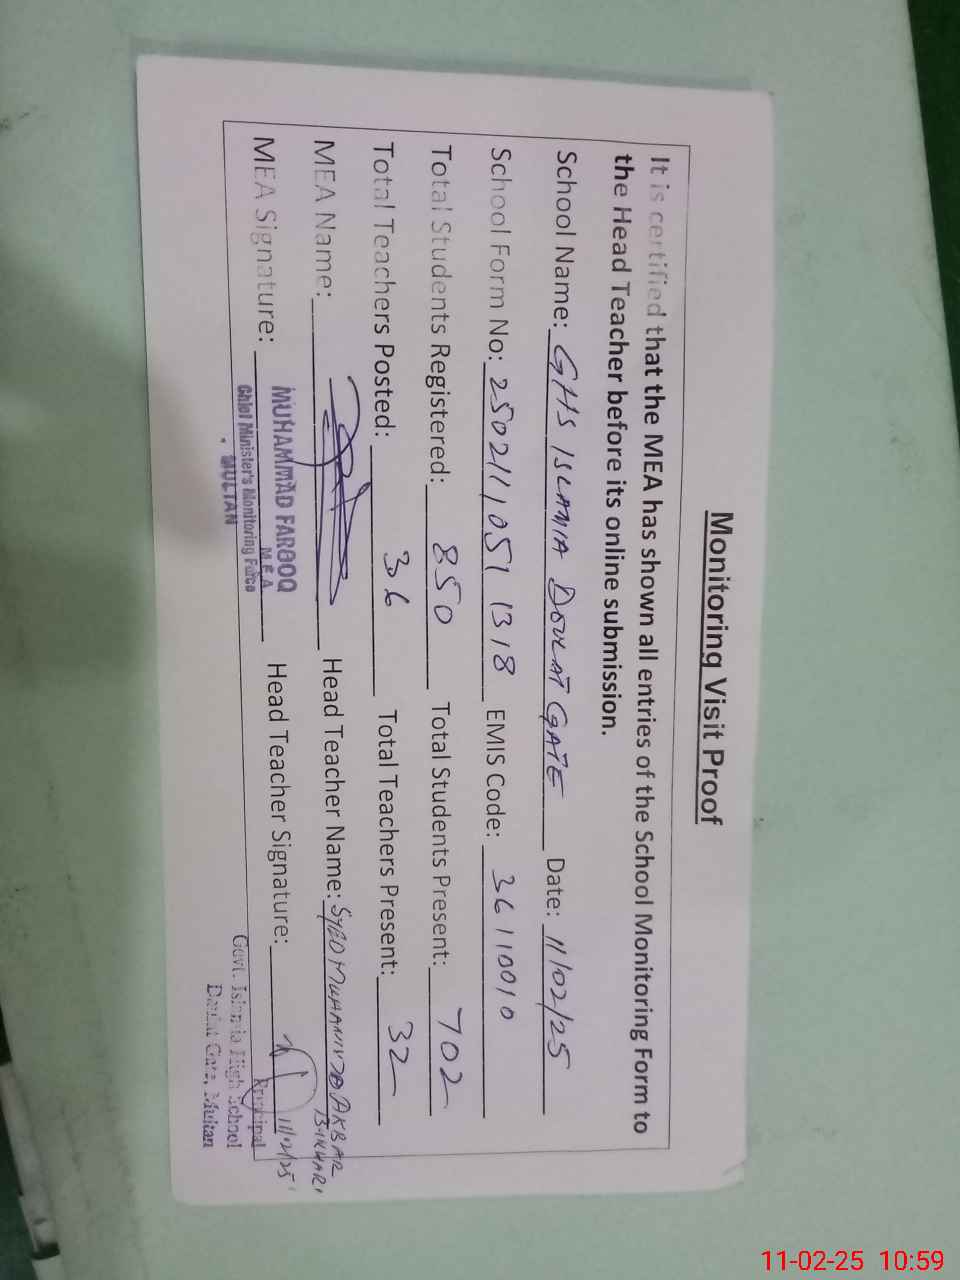 Monitoring Visit Proof
It is certified that the MEA has shown all entries of the School Monitoring Form to
the Head Teacher before its online submission.
School Name: GHS ISLAMIA DOULAT GATE Date: 11/02/25
School Form No: 250211105 1318 EMIS Code: 36110010
Total Students Registered: 850 Total Students Present: 702
Total Teachers Posted: 36 Total Teachers Present: 32
MEA Name: Head Teacher Name: SYED MUHAMMAD AKBAR
BUKHARI
MEA Signature: Head Teacher Signature: 11/2/25
MUHAMMAD FAROOQ
M.E.A
Chief Minister's Monitoring Force
MULTAN
Principal
Govt. Islamia High School
Daulat Gate, Multan
11-02-25 10:59